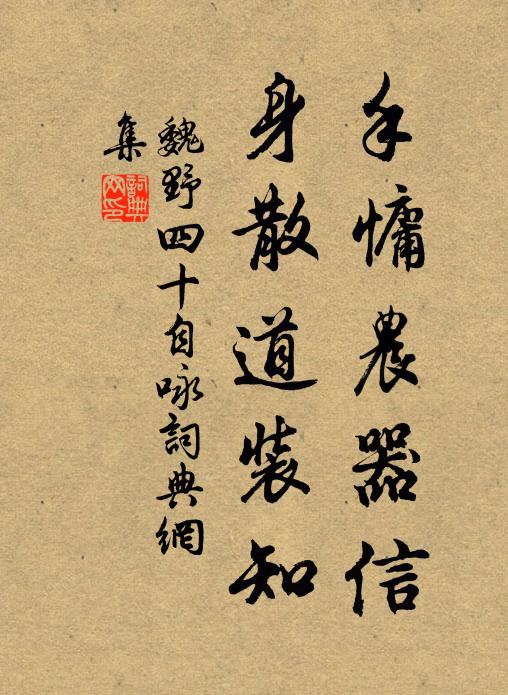 手慵農器信
身散道裝知
魏野四十自咏詞典網
集
詞典
网印